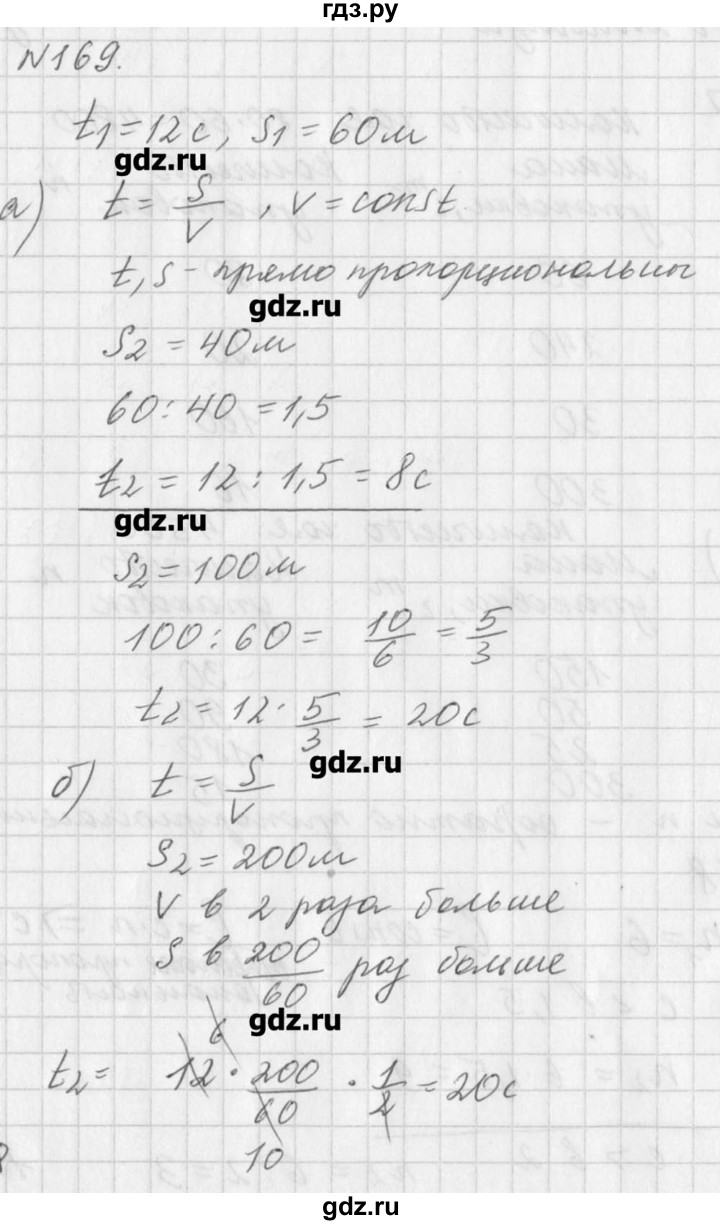 гдз.ру
N169.
t1 = 12с, S1 = 60м
gdz.ru
а) t = S/V, V = const
t, S - прямо пропорциональны
gdz.ru
S2 = 40м
60 : 40 = 1,5
t2 = 12 : 1,5 = 8с
gdz.ru
S2 = 100м
100 : 60 = 10/6 = 5/3
t2 = 12 · 5/3 = 20с
gdz.ru
б) t = S/V
S2 = 200м
V в 2 раза больше
S в 200/60 раз больше
gdz.ru
6
t2 = 12 · 200/60 · 1/2 = 20с
10
gdz.ru